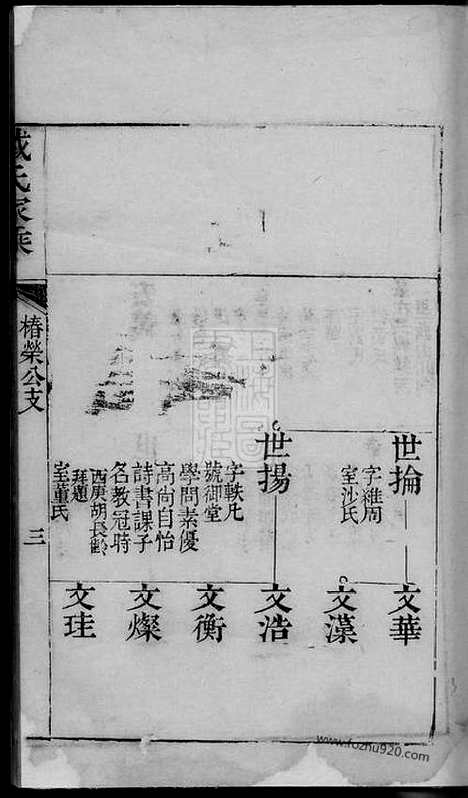 世掄
字維周
室沙氏
世揚
字軼凡
號御堂
學問素優
高尚自怡
詩書課子
名教冠時
西庚胡長齡
拜題
室董氏
文華
文藻
文浩
文衡
文燦
文珪
氏家乘
椿榮公支
三
www.fozhu920.com